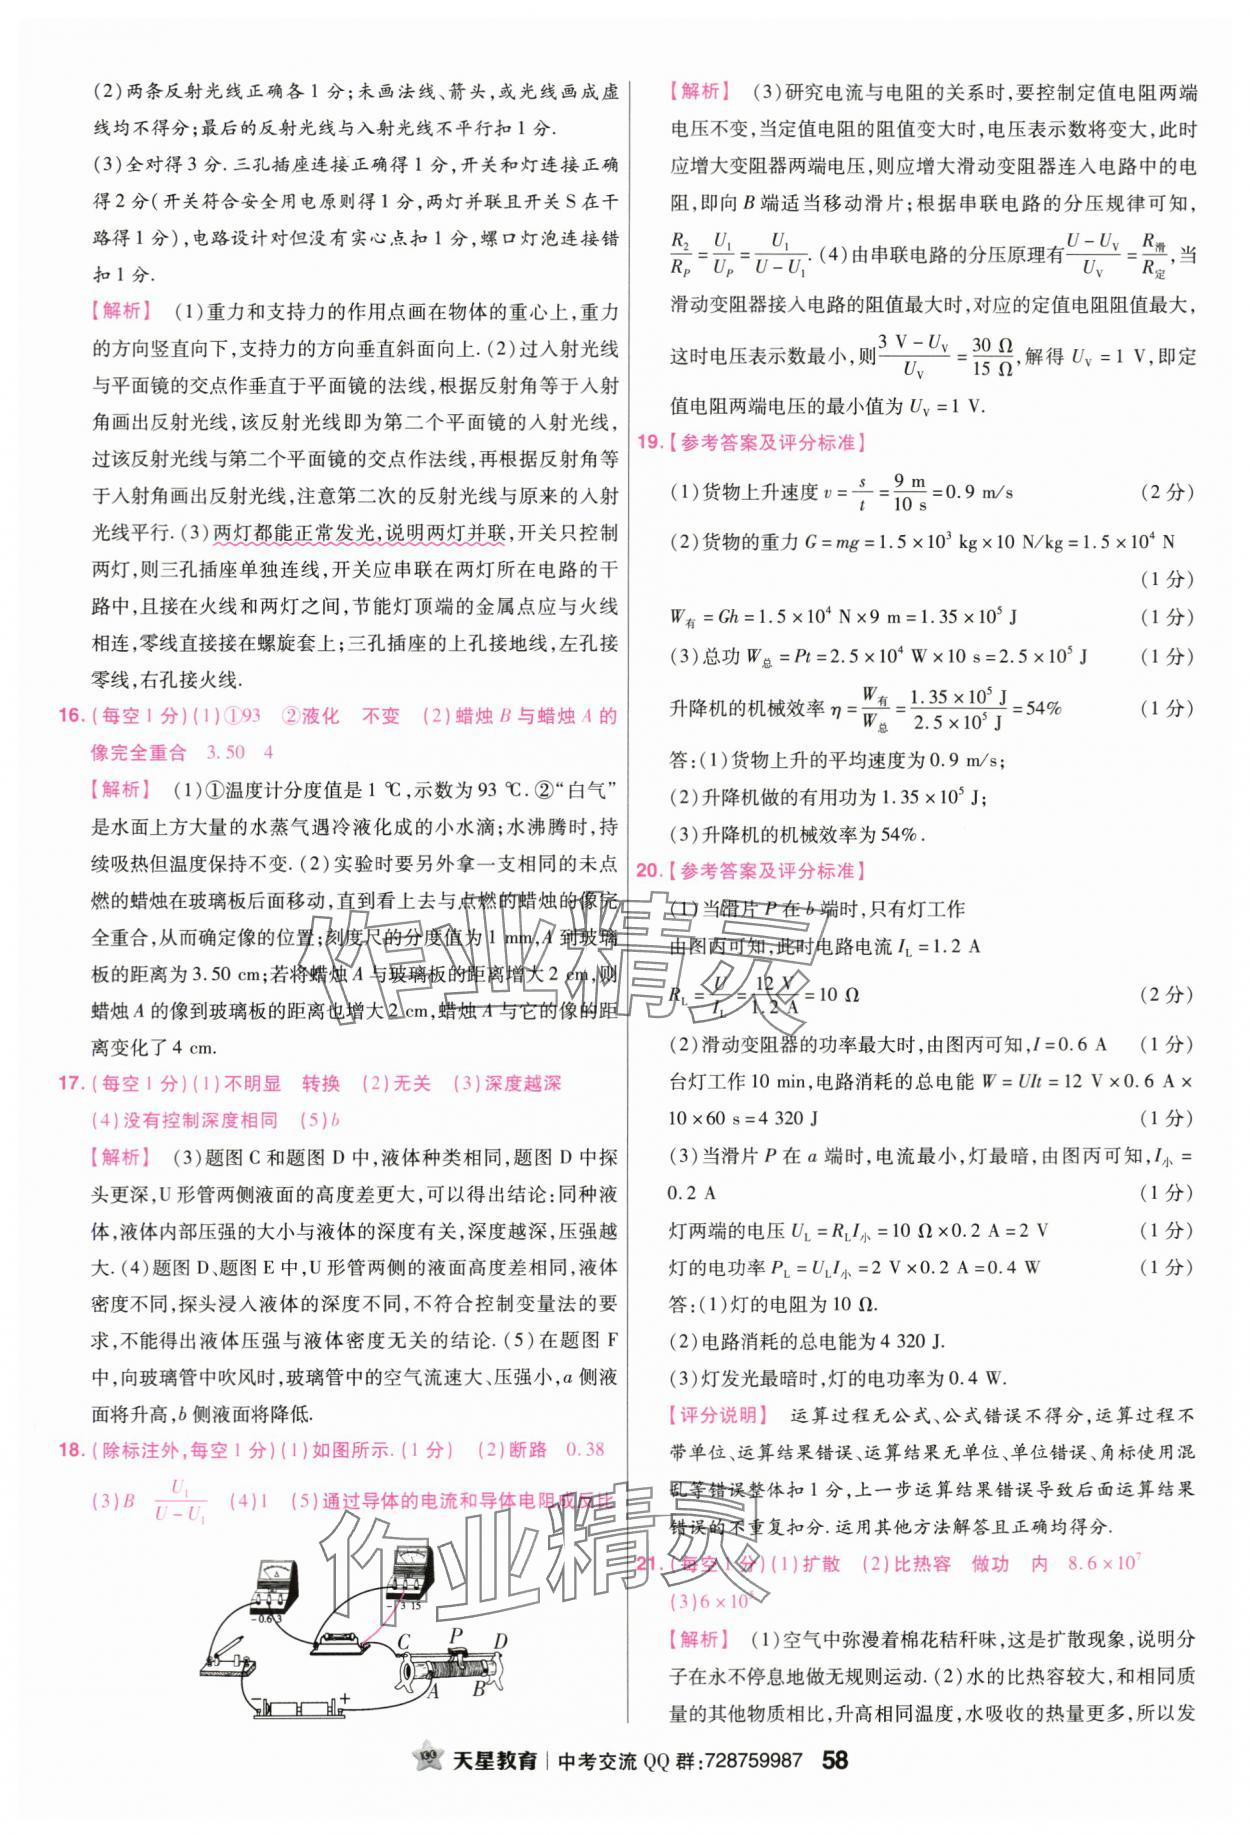 (2)两条反射光线正确各1分;未画法线、箭头,或光线画成虚
线均不得分;最后的反射光线与入射光线不平行扣1分.
(3)全对得3分.三孔插座连接正确得1分,开关和灯连接正确
得2分(开关符合安全用电原则得1分,两灯并联且开关S在干
路得1分),电路设计对但没有实心点扣1分,螺口灯泡连接错
扣1分.
【解析】 (1)重力和支持力的作用点画在物体的重心上,重力
的方向竖直向下,支持力的方向垂直斜面向上.(2)过入射光线
与平面镜的交点作垂直于平面镜的法线,根据反射角等于入射
角画出反射光线,该反射光线即为第二个平面镜的入射光线,
过该反射光线与第二个平面镜的交点作法线,再根据反射角等
于入射角画出反射光线,注意第二次的反射光线与原来的入射
光线平行.(3)两灯都能正常发光,说明两灯并联,开关只控制
两灯,则三孔插座单独连线,开关应串联在两灯所在电路的干
路中,且接在火线和两灯之间,节能灯顶端的金属点应与火线
相连,零线直接接在螺旋套上;三孔插座的上孔接地线,左孔接
零线,右孔接火线.
16.(每空1分)(1)①93 ②液化 不变 (2)蜡烛B与蜡烛A的
像完全重合 3.50 4
【解析】 (1)①温度计分度值是1 ℃,示数为93 ℃.②“白气”
是水面上方大量的水蒸气遇冷液化成的小水滴;水沸腾时,持
续吸热但温度保持不变.(2)实验时要另外拿一支相同的未点
燃的蜡烛在玻璃板后面移动,直到看上去与点燃的蜡烛的像完
全重合,从而确定像的位置;刻度尺的分度值为1 mm,A到玻璃
板的距离为3.50 cm;若将蜡烛A与玻璃板的距离增大2 cm,则
蜡烛A的像到玻璃板的距离也增大2 cm,蜡烛A与它的像的距
离变化了4 cm.
17.(每空1分)(1)不明显 转换 (2)无关 (3)深度越深
(4)没有控制深度相同 (5)b
【解析】 (3)题图C和题图D中,液体种类相同,题图D中探
头更深,U形管两侧液面的高度差更大,可以得出结论:同种液
体,液体内部压强的大小与液体的深度有关,深度越深,压强越
大.(4)题图D、题图E中,U形管两侧的液面高度差相同,液体
密度不同,探头浸入液体的深度不同,不符合控制变量法的要
求,不能得出液体压强与液体密度无关的结论.(5)在题图F
中,向玻璃管中吹风时,玻璃管中的空气流速大、压强小,a侧液
面将升高,b侧液面将降低.
18.(除标注外,每空1分)(1)如图所示.(1分) (2)断路 0.38
(3)B U₁/(U-U₁) (4)1 (5)通过导体的电流和导体电阻成反比
A
- 0.6 3
- 3 15
C P D
A B
- +
【解析】 (3)研究电流与电阻的关系时,要控制定值电阻两端
电压不变,当定值电阻的阻值变大时,电压表示数将变大,此时
应增大变阻器两端电压,则应增大滑动变阻器连入电路中的电
阻,即向B端适当移动滑片;根据串联电路的分压规律可知,
R₂/R_P=U₁/U_P=U₁/(U-U₁).(4)由串联电路的分压原理有(U-U_V)/U_V=R滑/R定,当
滑动变阻器接入电路的阻值最大时,对应的定值电阻阻值最大,
这时电压表示数最小,则(3 V-U_V)/U_V=30 Ω/15 Ω,解得U_V=1 V,即定
值电阻两端电压的最小值为U_V=1 V.
19.【参考答案及评分标准】
(1)货物上升速度v=s/t=9 m/10 s=0.9 m/s (2分)
(2)货物的重力G=mg=1.5×10³ kg×10 N/kg=1.5×10⁴ N
(1分)
W有=Gh=1.5×10⁴ N×9 m=1.35×10⁵ J (1分)
(3)总功W总=Pt=2.5×10⁴ W×10 s=2.5×10⁵ J (1分)
升降机的机械效率η=W有/W总=1.35×10⁵ J/2.5×10⁵ J=54% (1分)
答:(1)货物上升的平均速度为0.9 m/s;
(2)升降机做的有用功为1.35×10⁵ J;
(3)升降机的机械效率为54%.
20.【参考答案及评分标准】
(1)当滑片P在b端时,只有灯工作
由图丙可知,此时电路电流I_L=1.2 A
R_L=U/I_L=12 V/1.2 A=10 Ω (2分)
(2)滑动变阻器的功率最大时,由图丙可知,I=0.6 A (1分)
台灯工作10 min,电路消耗的总电能W=UIt=12 V×0.6 A×
10×60 s=4 320 J (1分)
(3)当滑片P在a端时,电流最小,灯最暗,由图丙可知,I小=
0.2 A (1分)
灯两端的电压U_L=R_L I小=10 Ω×0.2 A=2 V (1分)
灯的电功率P_L=U_L I小=2 V×0.2 A=0.4 W (1分)
答:(1)灯的电阻为10 Ω.
(2)电路消耗的总电能为4 320 J.
(3)灯发光最暗时,灯的电功率为0.4 W.
【评分说明】 运算过程无公式、公式错误不得分,运算过程不
带单位、运算结果错误、运算结果无单位、单位错误、角标使用混
乱等错误整体扣1分,上一步运算结果错误导致后面运算结果
错误的不重复扣分.运用其他方法解答且正确均得分.
21.(每空1分)(1)扩散 (2)比热容 做功 内 8.6×10⁷
(3)6×10⁵
【解析】 (1)空气中弥漫着棉花秸秆味,这是扩散现象,说明分
子在永不停息地做无规则运动.(2)水的比热容较大,和相同质
量的其他物质相比,升高相同温度,水吸收的热量更多,所以发
作业精灵
作业精灵
天星教育 | 中考交流QQ群:728759987 58